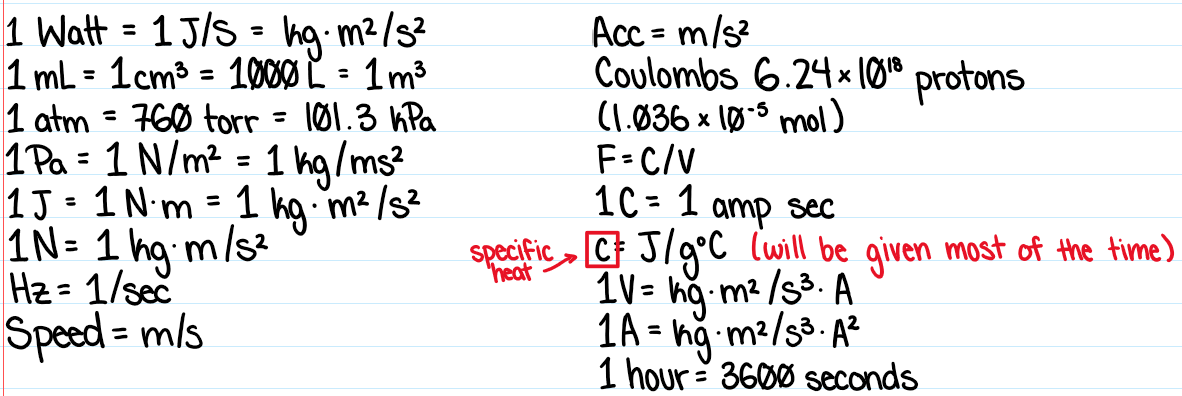 1 Watt = 1 J/S = kg·m²/s²
1 mL = 1cm³ = 1000 L = 1m³
1 atm = 760 torr = 101.3 kPa
1 Pa = 1 N/m² = 1 kg/ms²
1 J = 1 N·m = 1 kg·m²/s²
1N = 1 kg·m/s²
Hz = 1/sec
Speed = m/s
Acc = m/s²
Coulombs 6.24×10¹⁸ protons
(1.036 × 10⁻⁵ mol)
F = C/V
1C = 1 amp sec
specific heat → c = J/g°C (will be given most of the time)
1V = kg·m²/s³·A
1A = kg·m²/s³·A²
1 hour = 3600 seconds